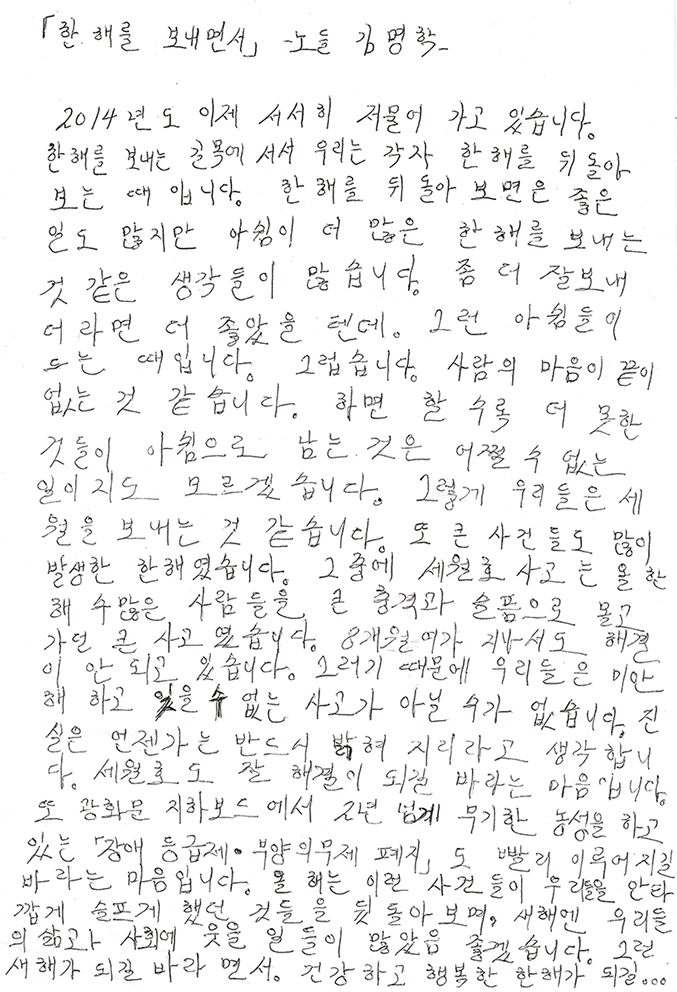 「한 해를 보내면서」 -노들 김명학-
2014년도 이제 서서히 저물어 가고 있습니다.
한해를 보내는 길목에 서서 우리는 각자 한해를 뒤돌아
보는 때 입니다. 한해를 뒤 돌아 보면은 좋은
일도 많지만 아쉼이 더 많은 한해를 보내는
것 같은 생각들이 많습니다. 좀 더 잘보내
더라면 더 좋았을 텐데. 그런 아쉼들이
드는 때입니다. 그럽습니다. 사람의 마음이 끝이
없는 것 같습니다. 하면 할 수록 더 못한
것들이 아쉼으로 남는 것은 어쩔 수 없는
일이지도 모르겠습니다. 그렇게 우리들은 세
월을 보내는 것 같습니다. 또 큰 사건들도 많이
발생한 한해였습니다. 그중에 세월호 사고는 올 한
해 수많은 사람들을 큰 충격과 슬픔으로 몰고
가던 큰 사고였습니다. 8개월여가 지나서도 해결
이 안 되고 있습니다. 그러기 때문에 우리들은 미안
해 하고 있을 수 없는 사고가 아닐 수가 없습니다. 진
실은 언젠가는 반드시 밝혀 지리라고 생각합니
다. 세월호도 잘 해결이 되길 바라는 마음입니다.
또 광화문 지하보드에서 2년 넘게 무기한 농성을 하고
있는 「장애 등급제·부양의무제 폐지」도 빨리 이루어지길
바라는 마음입니다. 올 해는 이런 사건들이 우리들을 안타
깝게 슬프게 했던 것들을 뒷돌아보며, 새해엔 우리들
의 삶과 사회에 웃을 일들이 많았음 좋겠습니다. 그런
새해가 되길 바라 면서. 건강하고 행복한 한해가 되길...